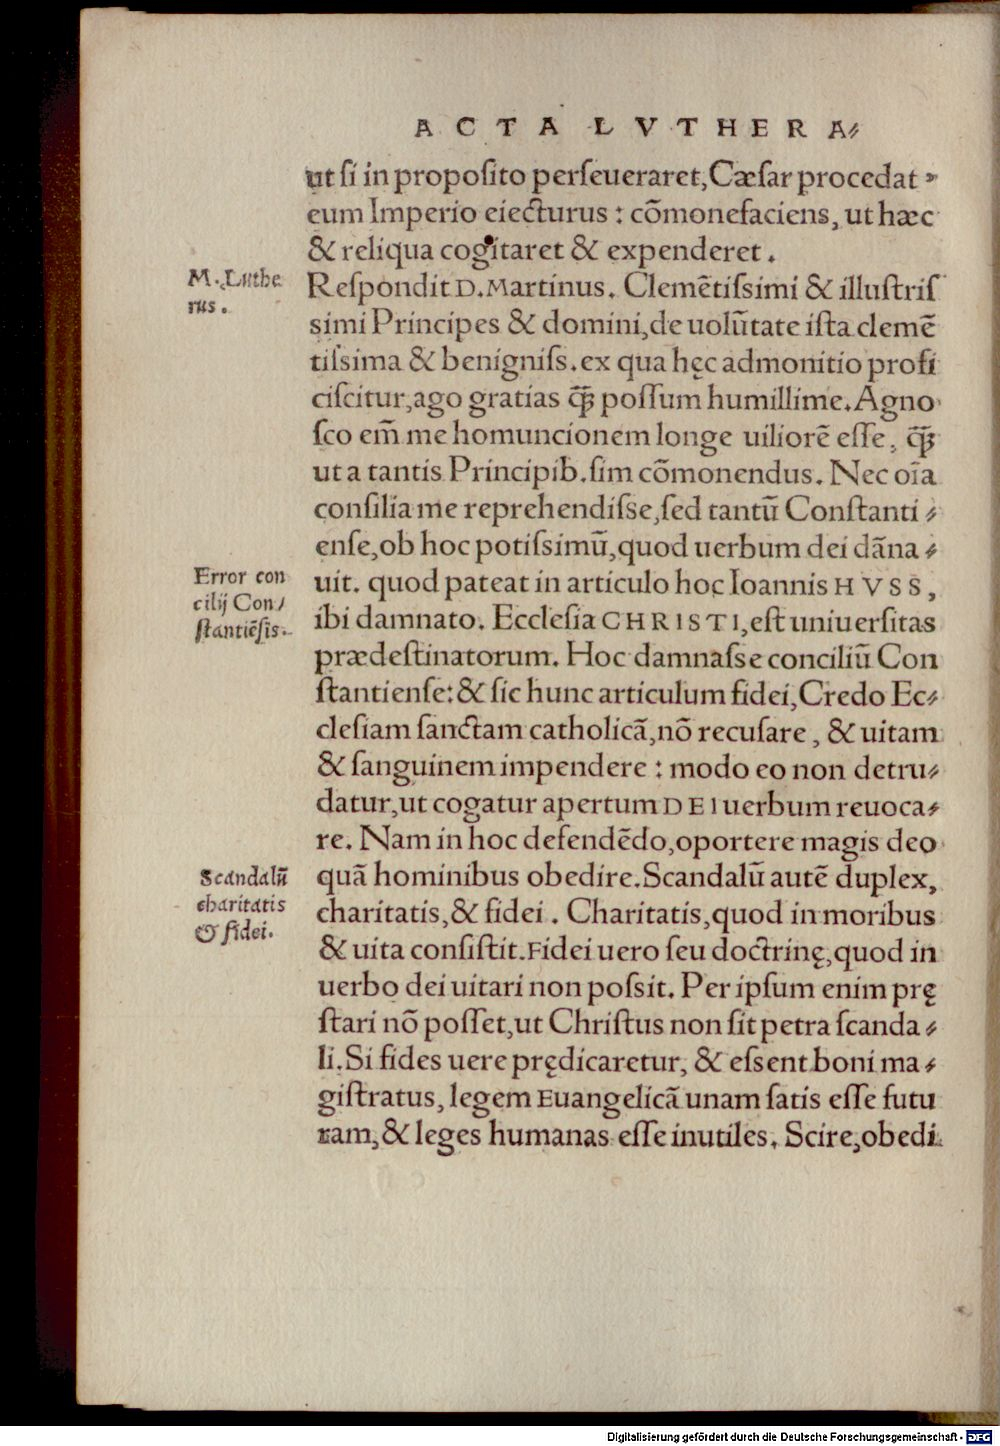 ACTA LVTHERA⸗
ut ſi in propoſito perſeueraret, Cæſar procedat⸗
eum Imperio eiecturus : cõmonefaciens, ut hæc
& reliqua cogitaret & expenderet.
M. Luthe
rus.
Reſpondit D. Martinus. Clemẽtiſsimi & illuſtriſ
simi Principes & domini, de uolũtate iſta clemẽ
tiſsima & benigniſs. ex qua hęc admonitio profi
ciſcitur, ago gratias q̃ꝫ poſſum humillime. Agno
ſco em̃ me homuncionem longe uiliorẽ eſſe, q̃ꝫ
ut a tantis Principib. ſim cõmonendus. Nec oĩa
conſilia me reprehendiſse, ſed tantũ Conſtanti⸗
enſe, ob hoc potiſsimũ, quod uerbum dei dãna⸗
Error con
cilij Con/
ſtantiẽſis.
uit. quod pateat in articulo hoc Ioannis HVSS,
ibi damnato. Eccleſia CHRISTI, eſt uniuerſitas
prædeſtinatorum. Hoc damnaſse conciliũ Con
ſtantienſe: & ſic hunc articulum fidei, Credo Ec⸗
cleſiam ſanctam catholicã, nõ recuſare, & uitam
& ſanguinem impendere : modo eo non detru⸗
datur, ut cogatur apertum DEI uerbum reuoca⸗
re. Nam in hoc defendẽdo, oportere magis deo
Scandalũ
charitatis
& fidei.
quã hominibus obedire. Scandalũ autẽ duplex,
charitatis, & fidei. Charitatis, quod in moribus
& uita conſiſtit. Fidei uero ſeu doctrinę, quod in
uerbo dei uitari non poſsit. Per ipſum enim prę
ſtari nõ poſſet, ut Chriſtus non ſit petra ſcanda⸗
li. Si fides uere prędicaretur, & eſsent boni ma⸗
giſtratus, legem Euangelicã unam ſatis eſſe futu
ram, & leges humanas eſſe inutiles. Scire, obedi
Digitalisierung gefördert durch die Deutsche Forschungsgemeinschaft - DFG